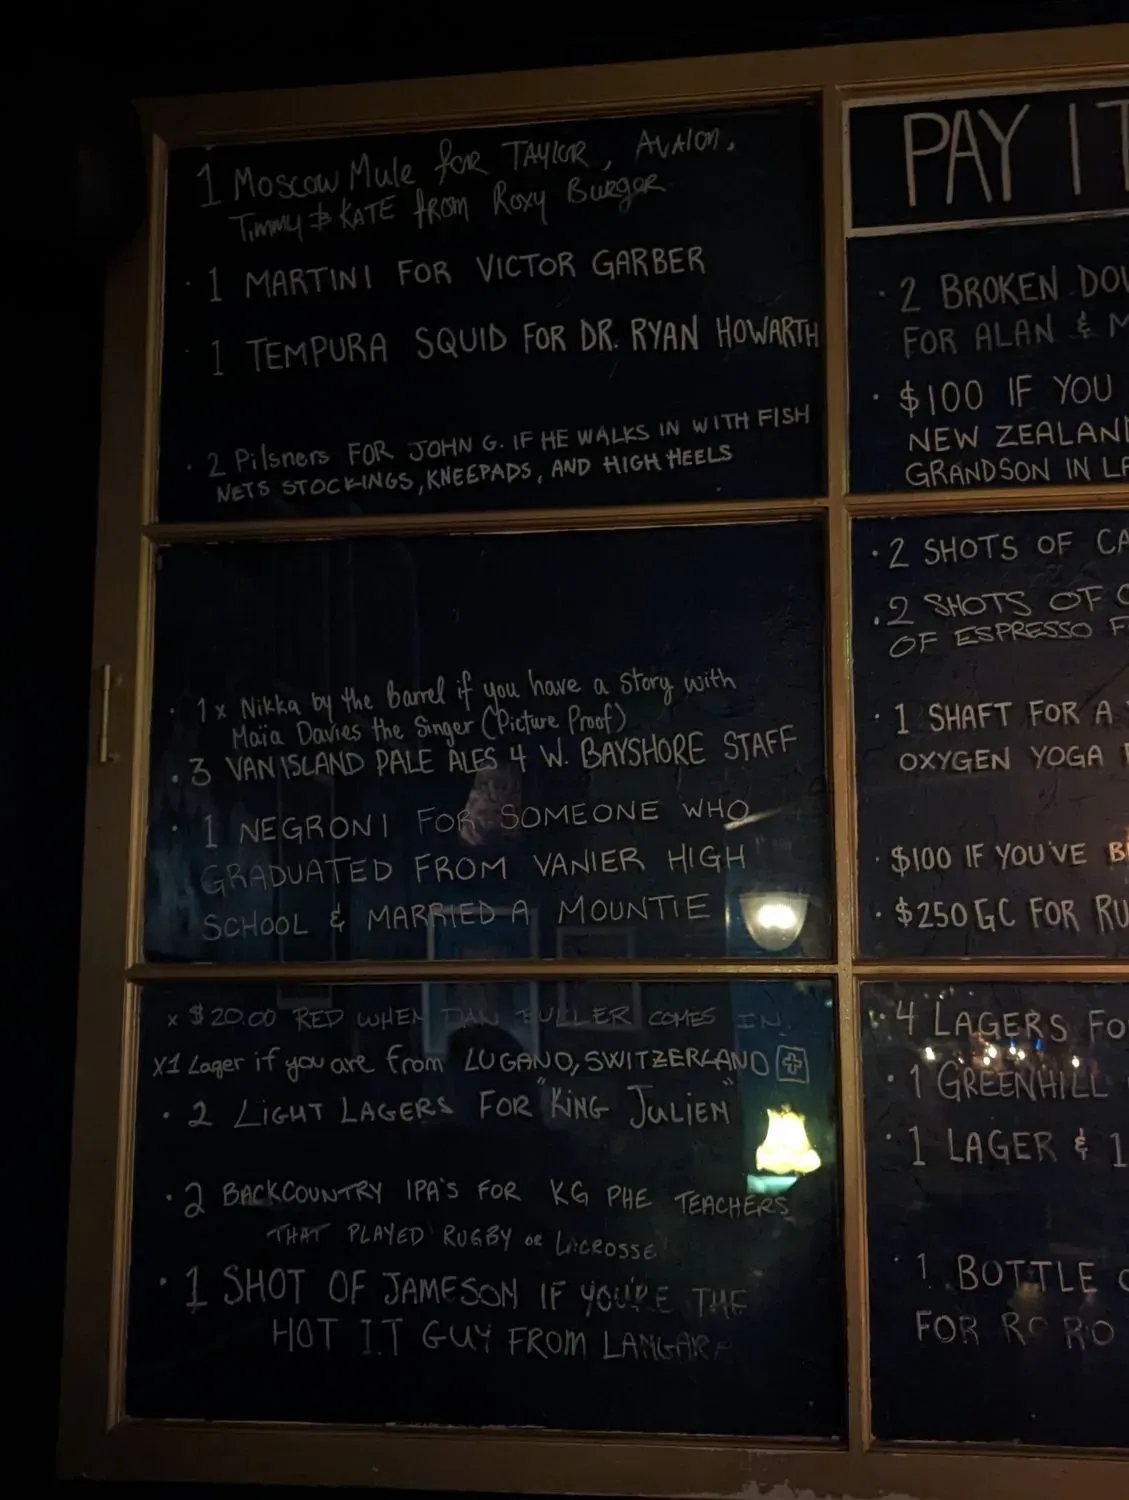 1 Moscow Mule for TAYLOR, AVALON,
Timmy & KATE from Roxy Burger
· 1 MARTINI FOR VICTOR GARBER
· 1 TEMPURA SQUID FOR DR. RYAN HOWARTH
· 2 Pilsners FOR JOHN G. IF HE WALKS IN WITH FISH
NETS STOCKINGS, KNEEPADS, AND HIGH HEELS
· 1x Nikka by the Barrel if you have a story with
Maia Davies the Singer (Picture Proof)
· 3 VAN ISLAND PALE ALES 4 W. BAYSHORE STAFF
· 1 NEGRONI FOR SOMEONE WHO
GRADUATED FROM VANIER HIGH
SCHOOL & MARRIED A MOUNTIE
x $20.00 RED WHEN DAN FULLER COMES IN
X1 Lager if you are from LUGANO, SWITZERLAND
· 2 LIGHT LAGERS FOR "KING JULIEN"
· 2 BACKCOUNTRY IPA'S FOR KG PHE TEACHERS
THAT PLAYED RUGBY OR LACROSSE
· 1 SHOT OF JAMESON IF YOU'RE THE
HOT I.T GUY FROM LANGARA
PAY IT
· 2 BROKEN DO
FOR ALAN & M
· $100 IF YOU
NEW ZEALAN
GRANDSON IN LA
· 2 SHOTS OF CA
· 2 SHOTS OF
OF ESPRESSO F
· 1 SHAFT FOR A
OXYGEN YOGA
· $100 IF YOU'VE B
· $250 GC FOR RU
· 4 LAGERS FO
· 1 GREENHILL
· 1 LAGER & 1
· 1 BOTTLE
FOR RO RO